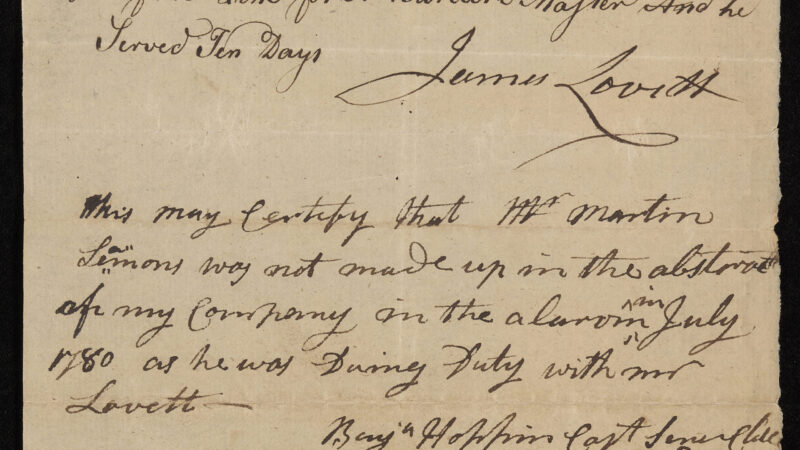 Master And he
Served Ten Days
James Lovett
This may Certify that Mr Martin
Semons was not made up in the abstract
of my Company in the alarom in July
1780 as he was Doing Duty with mr
Lovett —
Benja Hoppin Capt